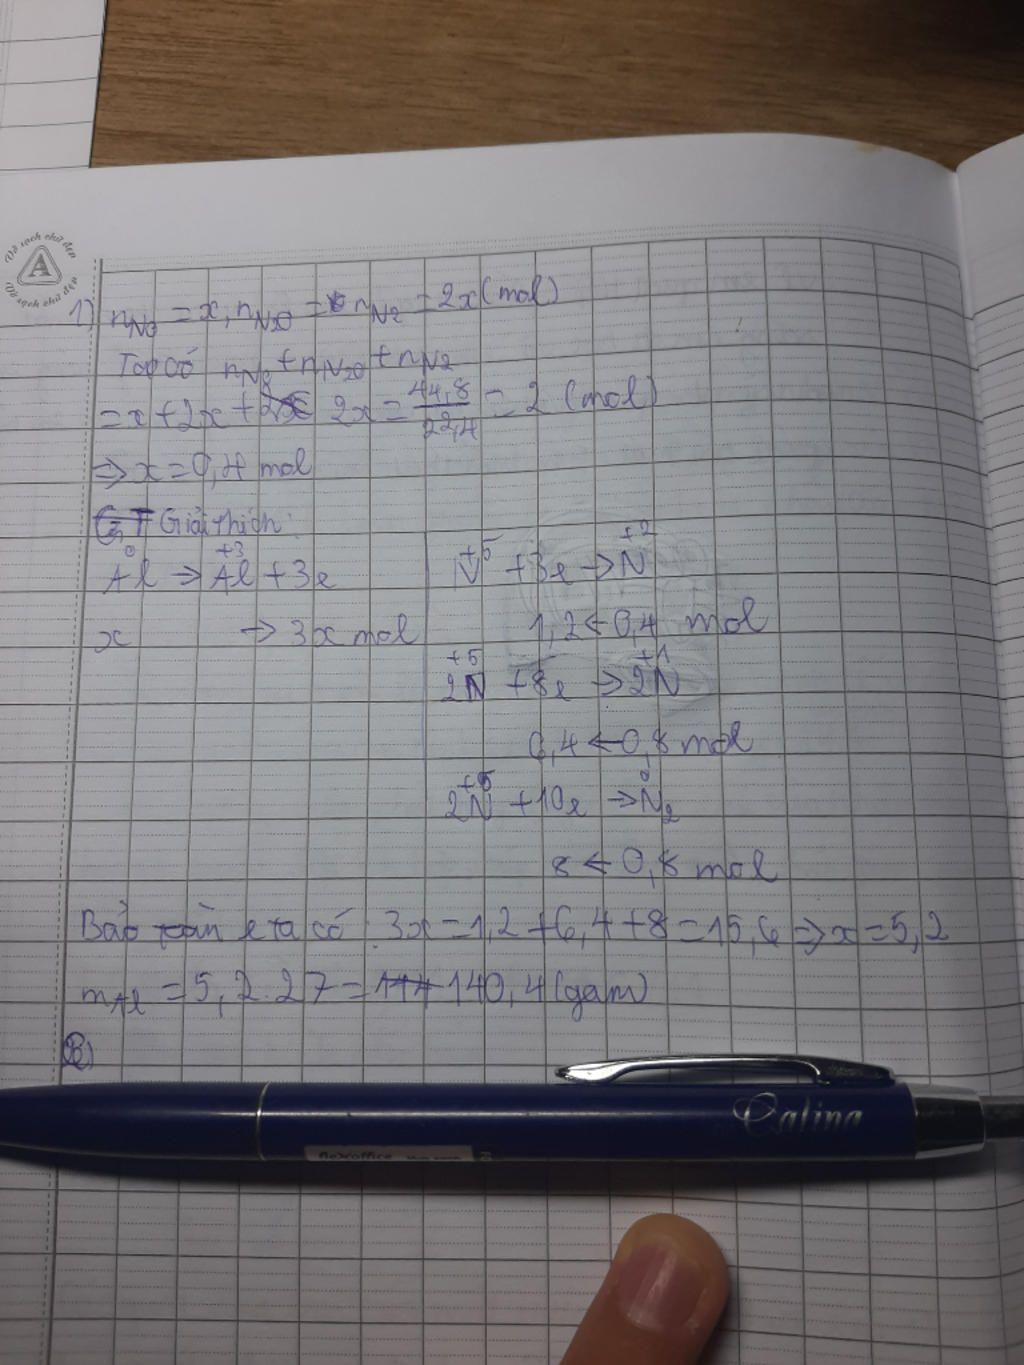 Vở sạch chữ đẹp
A
Vở sạch chữ đẹp
1) nNO = x, nN2O = nN2 = 2x (mol)
Ta có nNO + nN2O + nN2
= x + 2x + 2x = 44,8/22,4 = 2 (mol)
⇒ x = 0,4 mol
Giải thích:
0 +3
Al → Al + 3e
x → 3x mol
+5 +2
N + 3e → N
1,2 ← 0,4 mol
+5 +1
2N + 8e → 2N
6,4 ← 0,8 mol
+5 0
2N + 10e → N2
8 ← 0,8 mol
Bảo toàn e ta có 3x = 1,2 + 6,4 + 8 = 15,6 ⇒ x = 5,2
mAl = 5,2.27 = 140,4 (gam)
2)
Calina
flexoffice